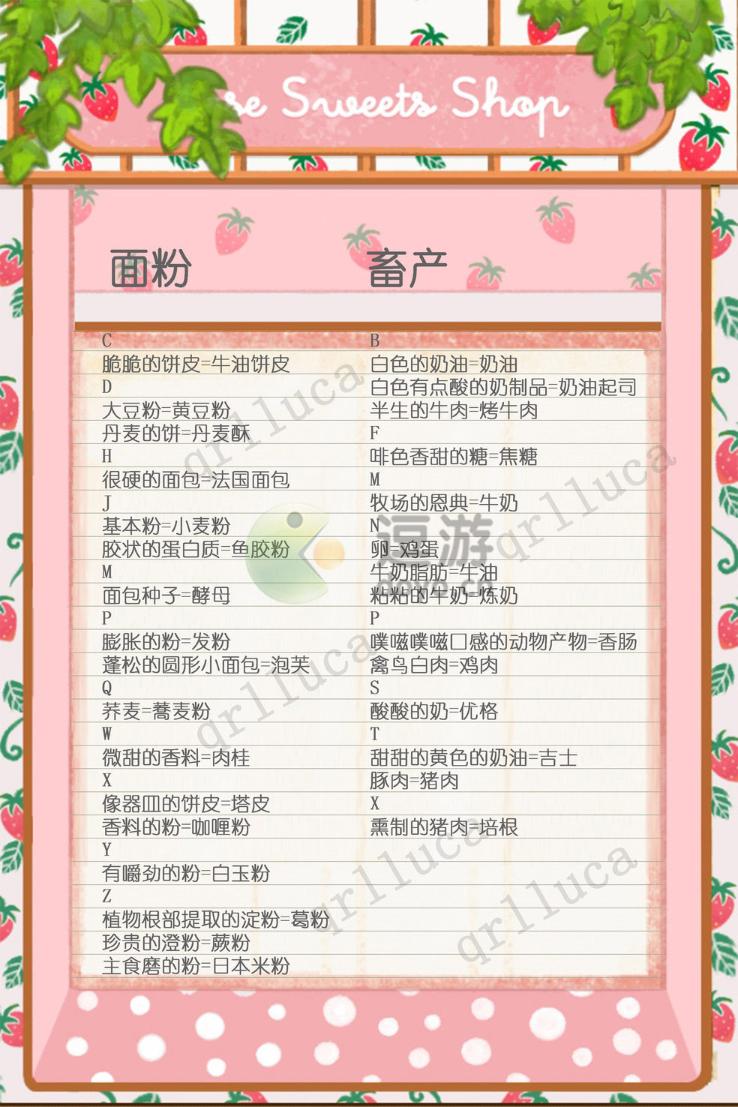 Sweets Shop
面粉
C
脆脆的饼皮=牛油饼皮
D
大豆粉=黄豆粉
丹麦的饼=丹麦酥
H
很硬的面包=法国面包
J
基本粉=小麦粉
胶状的蛋白质=鱼胶粉
M
面包种子=酵母
P
膨胀的粉=发粉
蓬松的圆形小面包=泡芙
Q
荞麦=蕎麦粉
W
微甜的香料=肉桂
X
像器皿的饼皮=塔皮
香料的粉=咖喱粉
Y
有嚼劲的粉=白玉粉
Z
植物根部提取的淀粉=葛粉
珍贵的澄粉=蕨粉
主食磨的粉=日本米粉
畜产
B
白色的奶油=奶油
白色有点酸的奶制品=奶油起司
半生的牛肉=烤牛肉
F
啡色香甜的糖=焦糖
M
牧场的恩典=牛奶
N
卵=鸡蛋
牛奶脂肪=牛油
粘粘的牛奶=炼奶
P
噗嗞噗嗞口感的动物产物=香肠
禽鸟白肉=鸡肉
S
酸酸的奶=优格
T
甜甜的黄色的奶油=吉士
豚肉=猪肉
X
熏制的猪肉=培根
逗游
qrlluca
qrlluca
qrlluca
qrlluca
qrlluca